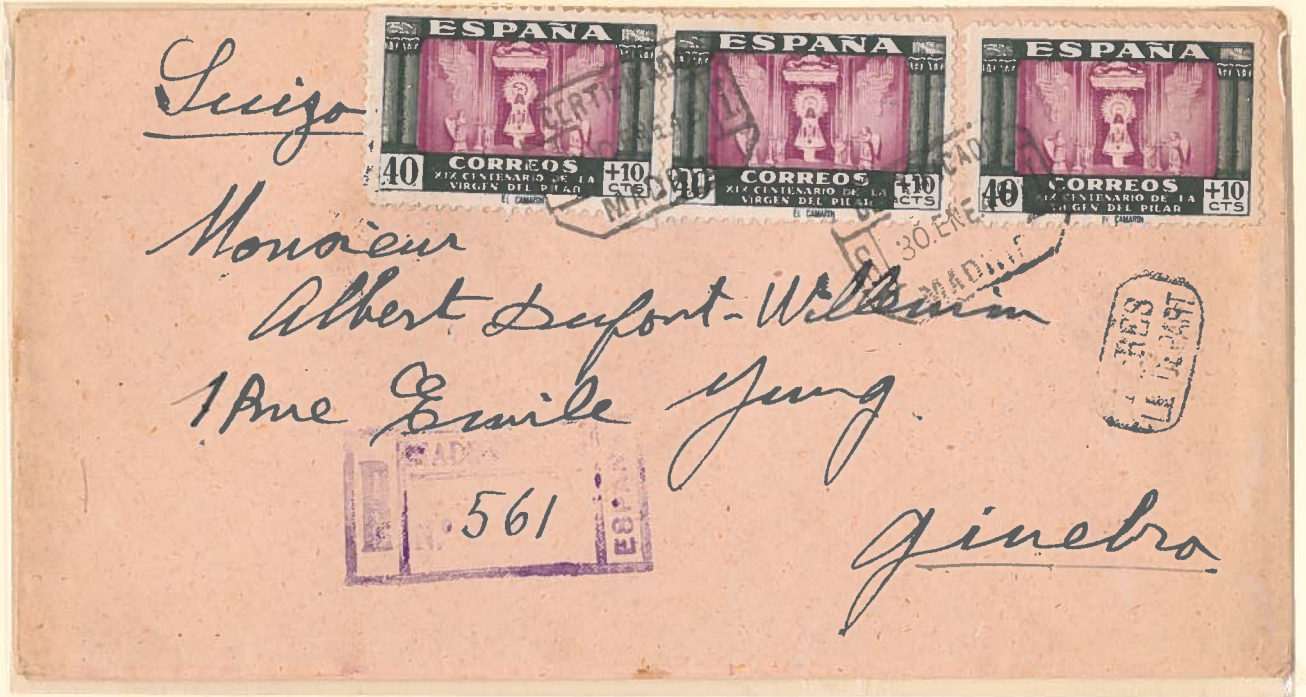 Suiza
ESPAÑA
40 CORREOS +10 CTS
XIX CENTENARIO DE LA
VIRGEN DEL PILAR
EL CAMARIN
ESPAÑA
40 CORREOS +10 CTS
XIX CENTENARIO DE LA
VIRGEN DEL PILAR
EL CAMARIN
ESPAÑA
40 CORREOS +10 CTS
XIX CENTENARIO DE LA
VIRGEN DEL PILAR
EL CAMARIN
30.ENE.
MADRID
Monsieur
Albert Dufont-Willemin
1 Rue Emile Yung.
Ginebra
R
MADRID
N.º 561
ESPAÑA